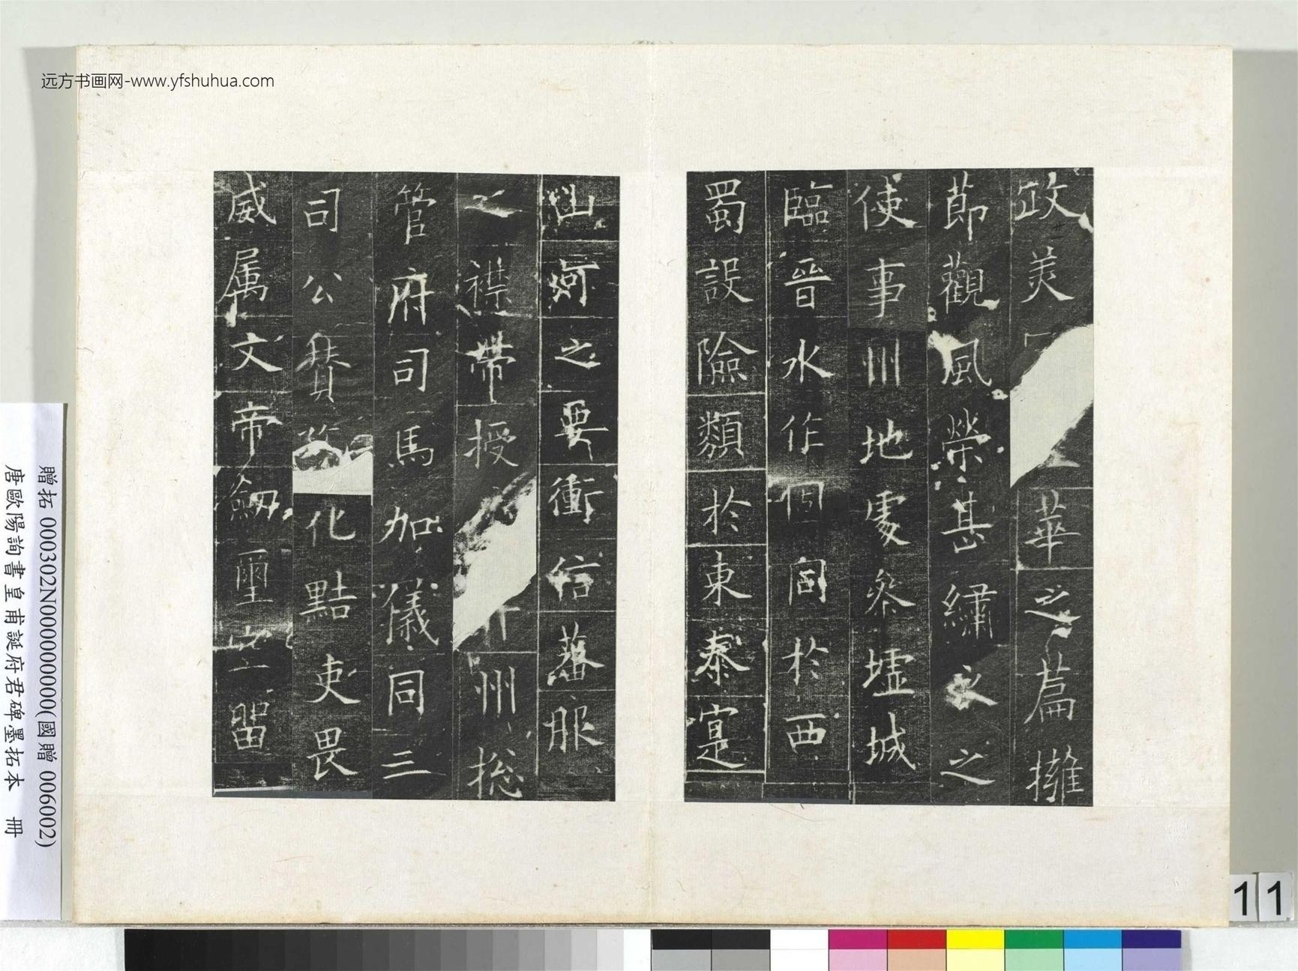 远方书画网-www.yfshuhua.com
政美
華之篇擁
節觀風榮甚繡衣之
使事州地處參墟城
臨晉水作固同於西
蜀設險類於東秦寔
山河之要衝信蕃服
之襟帶授
州総
管府司馬加儀同三
司公贊
化黠吏畏
威属文帝劒璽
留
贈拓 000302N000000000(國贈 006002)
唐歐陽詢書皇甫誕府君碑墨拓本 冊
11